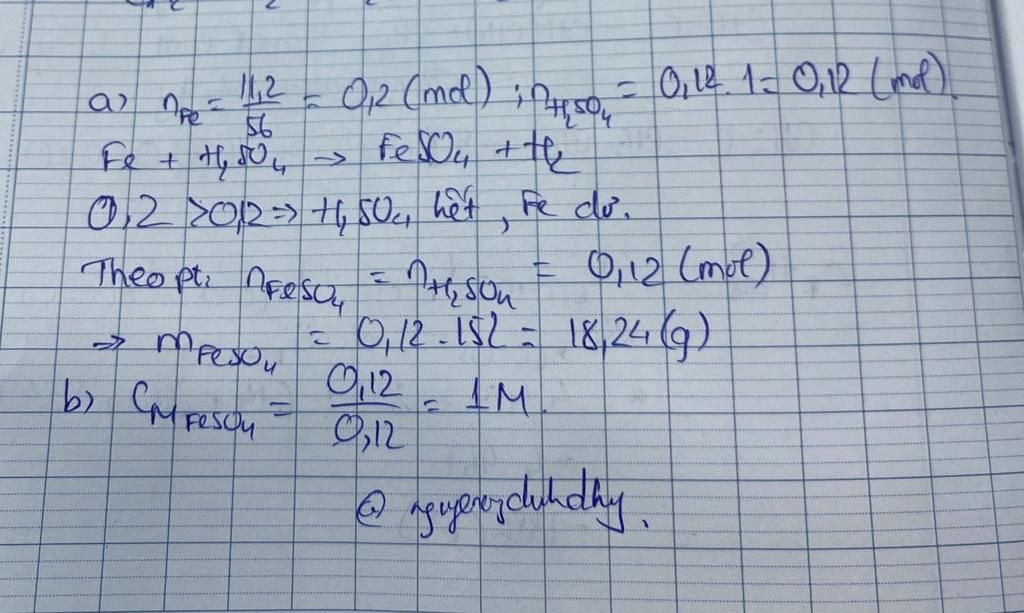 a) nFe = 11,2/56 = 0,2 (mol) ; nH₂SO₄ = 0,12 . 1 = 0,12 (mol).
Fe + H₂SO₄ → FeSO₄ + H₂
0,2 > 0,12 => H₂SO₄ hết, Fe dư.
Theo pt: nFeSO₄ = nH₂SO₄ = 0,12 (mol)
=> mFeSO₄ = 0,12 . 152 = 18,24 (g)
b) CM FeSO₄ = 0,12/0,12 = 1M.